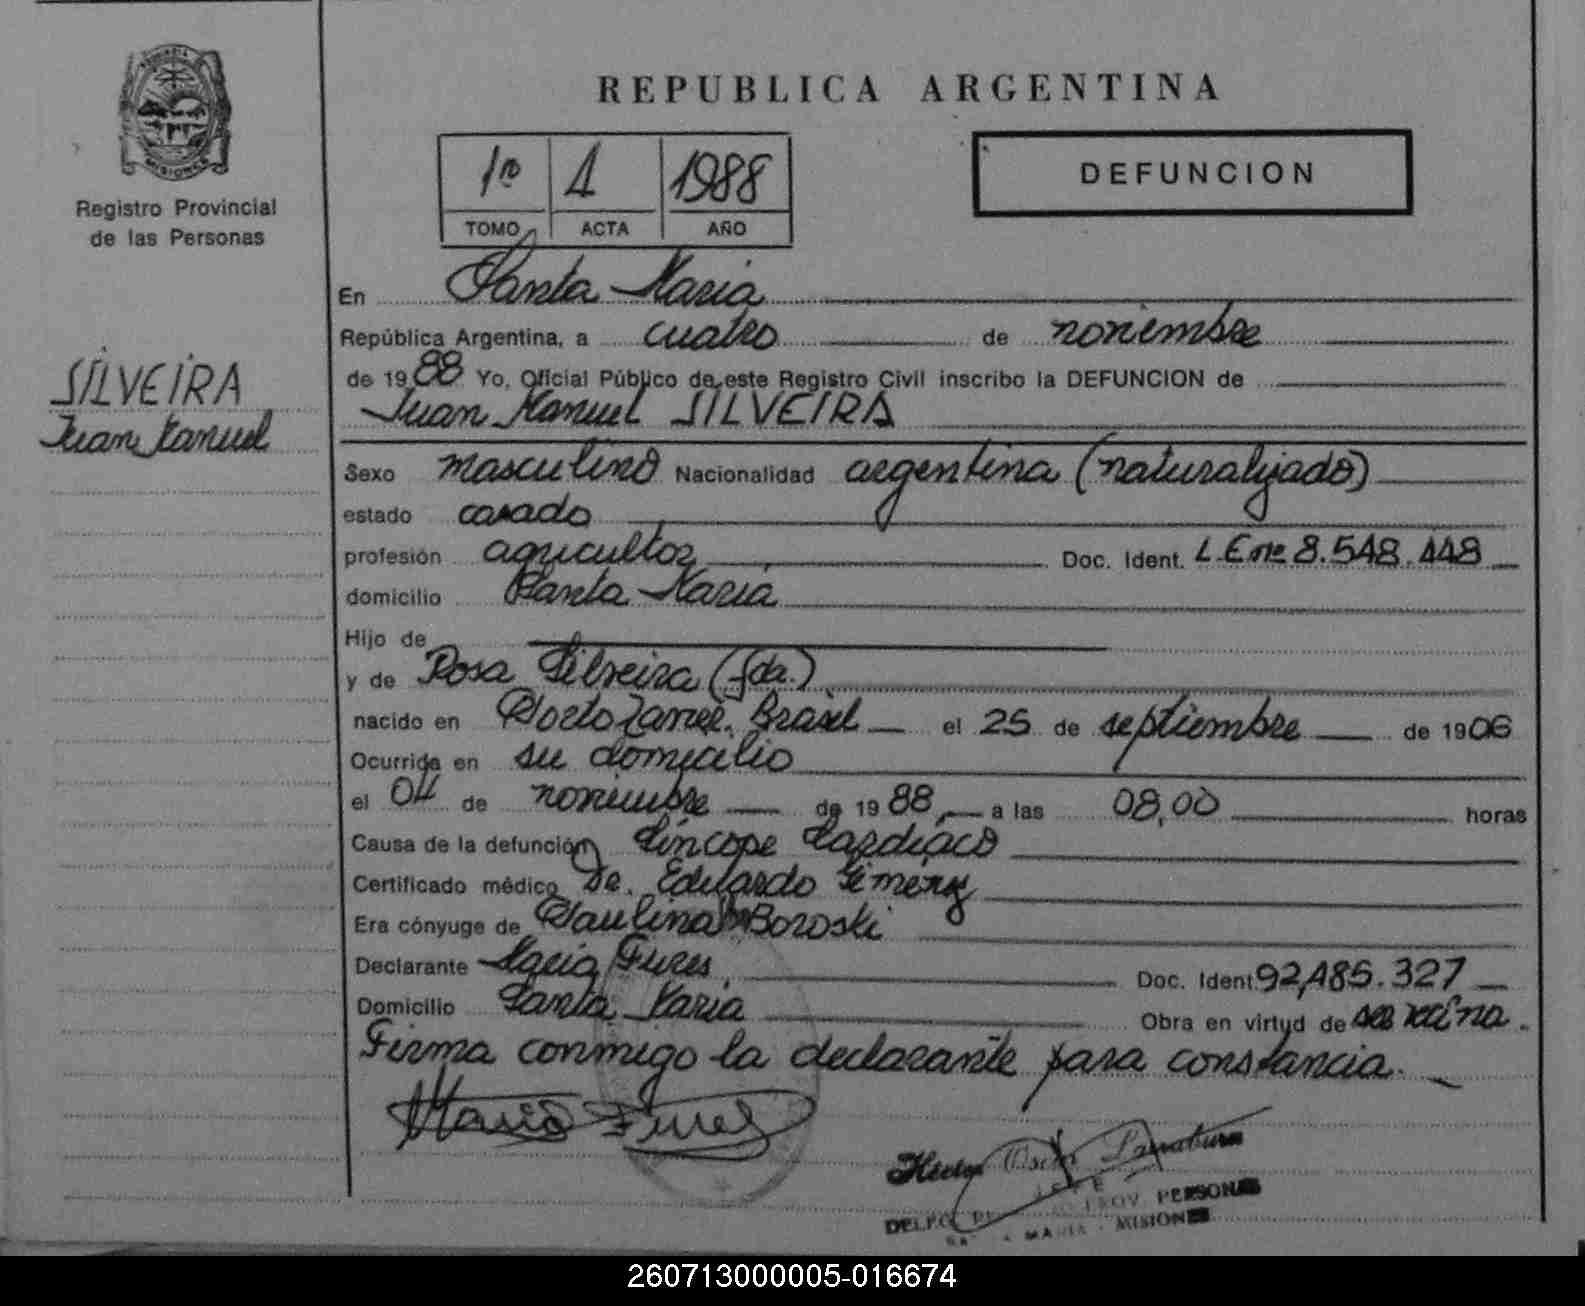 REPUBLICA ARGENTINA
DEFUNCION
1º 1 1988
TOMO ACTA AÑO
MISIONES
Registro Provincial
de las Personas
SILVEIRA
Juan Manuel
En Santa Maria
República Argentina, a cuatro de noviembre
de 1988 Yo, Oficial Público de este Registro Civil inscribo la DEFUNCION de
Juan Manuel SILVEIRA
Sexo masculino Nacionalidad argentina (naturalizado)
estado casado
profesión agricultor Doc. Ident. L.E. nº 8.548.448
domicilio Santa Maria
Hijo de
y de Rosa Silveira (fda.)
nacido en Porto Brasil el 25 de septiembre de 1906
Ocurrida en su domicilio
el 04 de noviembre de 1988, a las 08,00 horas
Causa de la defunción Síncope Cardíaco
Certificado médico Dr. Eduardo
Era cónyuge de Paulina Boroski
Declarante Maria Fures Doc. Ident 92,485.327
Domicilio Santa Maria Obra en virtud de ser vecina.
Firma conmigo la declarante para constancia.
Maria Fures
Hector Oscar
JEFE
PROV. PERSONAS
MARIA - MISIONES
260713000005-016674